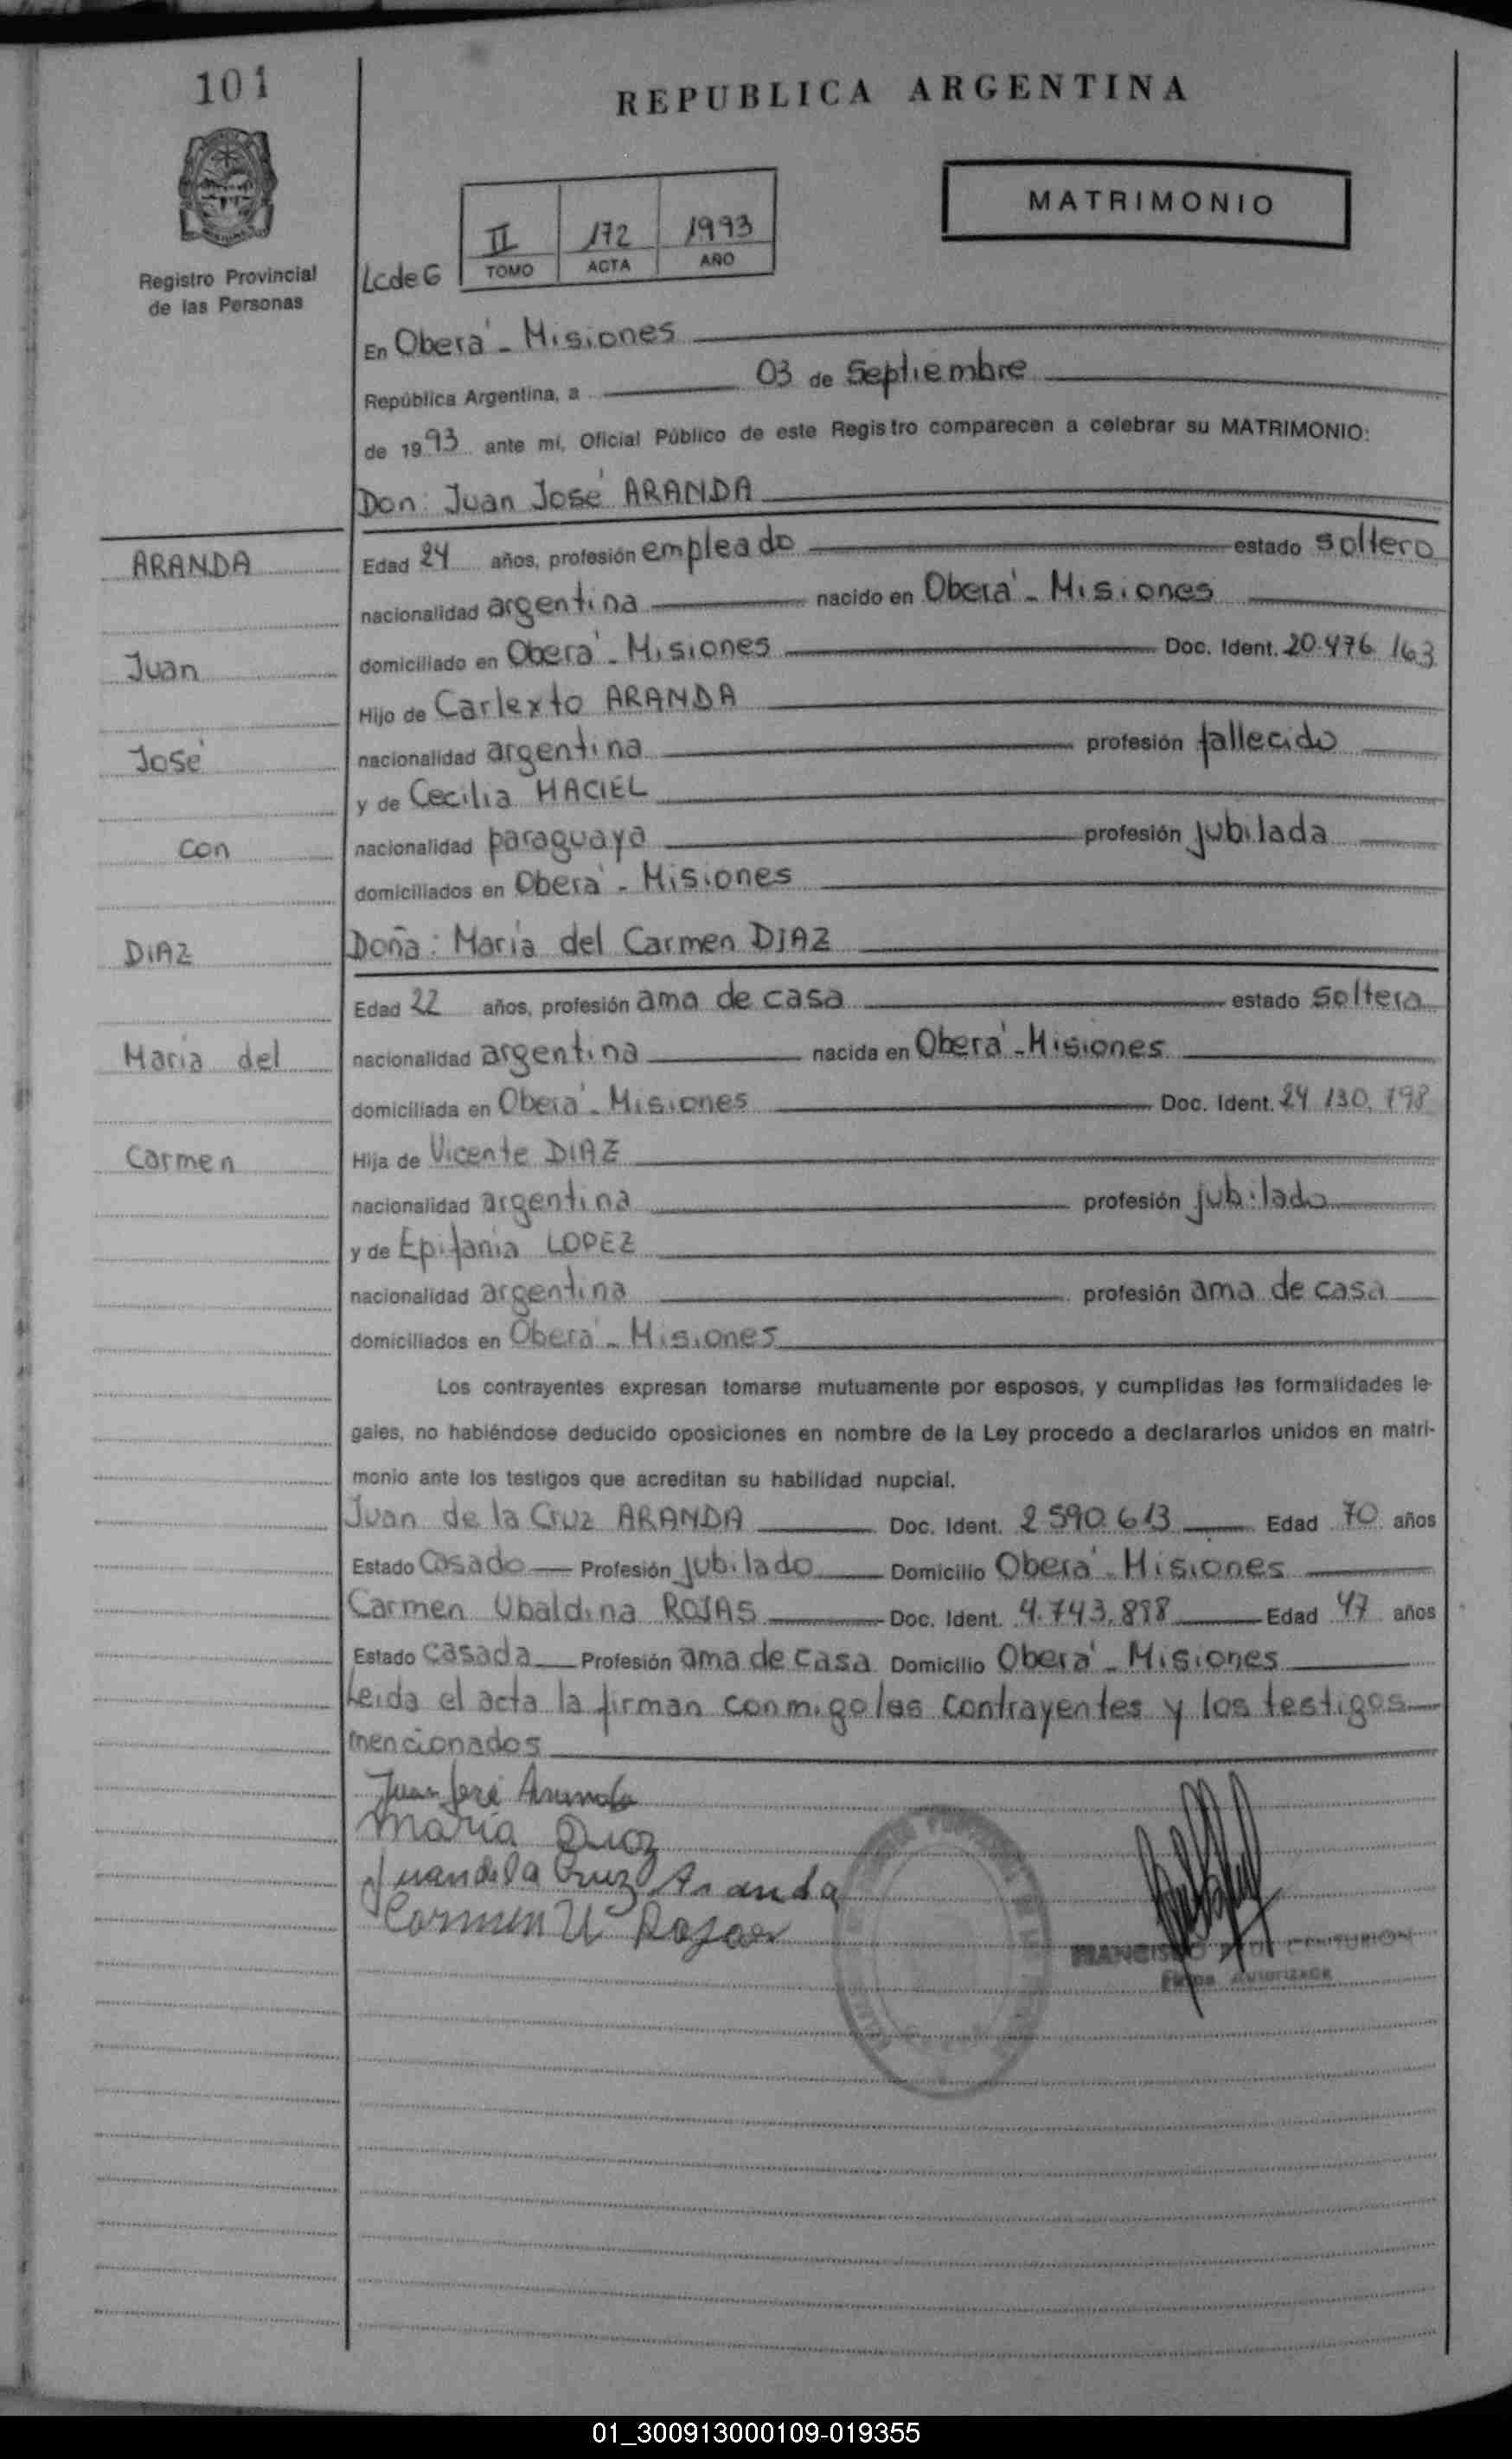 101
REPUBLICA ARGENTINA
MATRIMONIO
II 172 1993
TOMO ACTA AÑO
Registro Provincial
de las Personas
LcdeG
En Oberá - Misiones
República Argentina, a 03 de Septiembre
de 1993 ante mí, Oficial Público de este Registro comparecen a celebrar su MATRIMONIO:
Don: Juan José ARANDA
ARANDA
Edad 24 años, profesión empleado estado soltero
nacionalidad argentina nacido en Oberá - Misiones
Juan
domiciliado en Oberá - Misiones Doc. Ident. 20.476.163
Hijo de Carlexto ARANDA
José
nacionalidad argentina profesión fallecido
y de Cecilia MACIEL
con
nacionalidad paraguaya profesión jubilada
domiciliados en Oberá - Misiones
DIAZ
Doña: María del Carmen DIAZ
Edad 22 años, profesión ama de casa estado soltera
María del
nacionalidad argentina nacida en Oberá - Misiones
domiciliada en Oberá - Misiones Doc. Ident. 24.130.798
Carmen
Hija de Vicente DIAZ
nacionalidad argentina profesión jubilado
y de Epifania LOPEZ
nacionalidad argentina profesión ama de casa
domiciliados en Oberá - Misiones
Los contrayentes expresan tomarse mutuamente por esposos, y cumplidas las formalidades le-
gales, no habiéndose deducido oposiciones en nombre de la Ley procedo a declararlos unidos en matri-
monio ante los testigos que acreditan su habilidad nupcial.
Juan de la Cruz ARANDA Doc. Ident. 2.590.613 Edad 70 años
Estado Casado Profesión jubilado Domicilio Oberá - Misiones
Carmen Ubaldina ROJAS Doc. Ident. 4.743.898 Edad 47 años
Estado casada Profesión ama de casa Domicilio Oberá - Misiones
Leída el acta la firman conmigo los contrayentes y los testigos
mencionados
Juan José Aranda
María Diaz
Juan de la Cruz Aranda
Carmen U Rojas
FRANCISCO CENTURION
Firma Autorizada
01_300913000109-019355